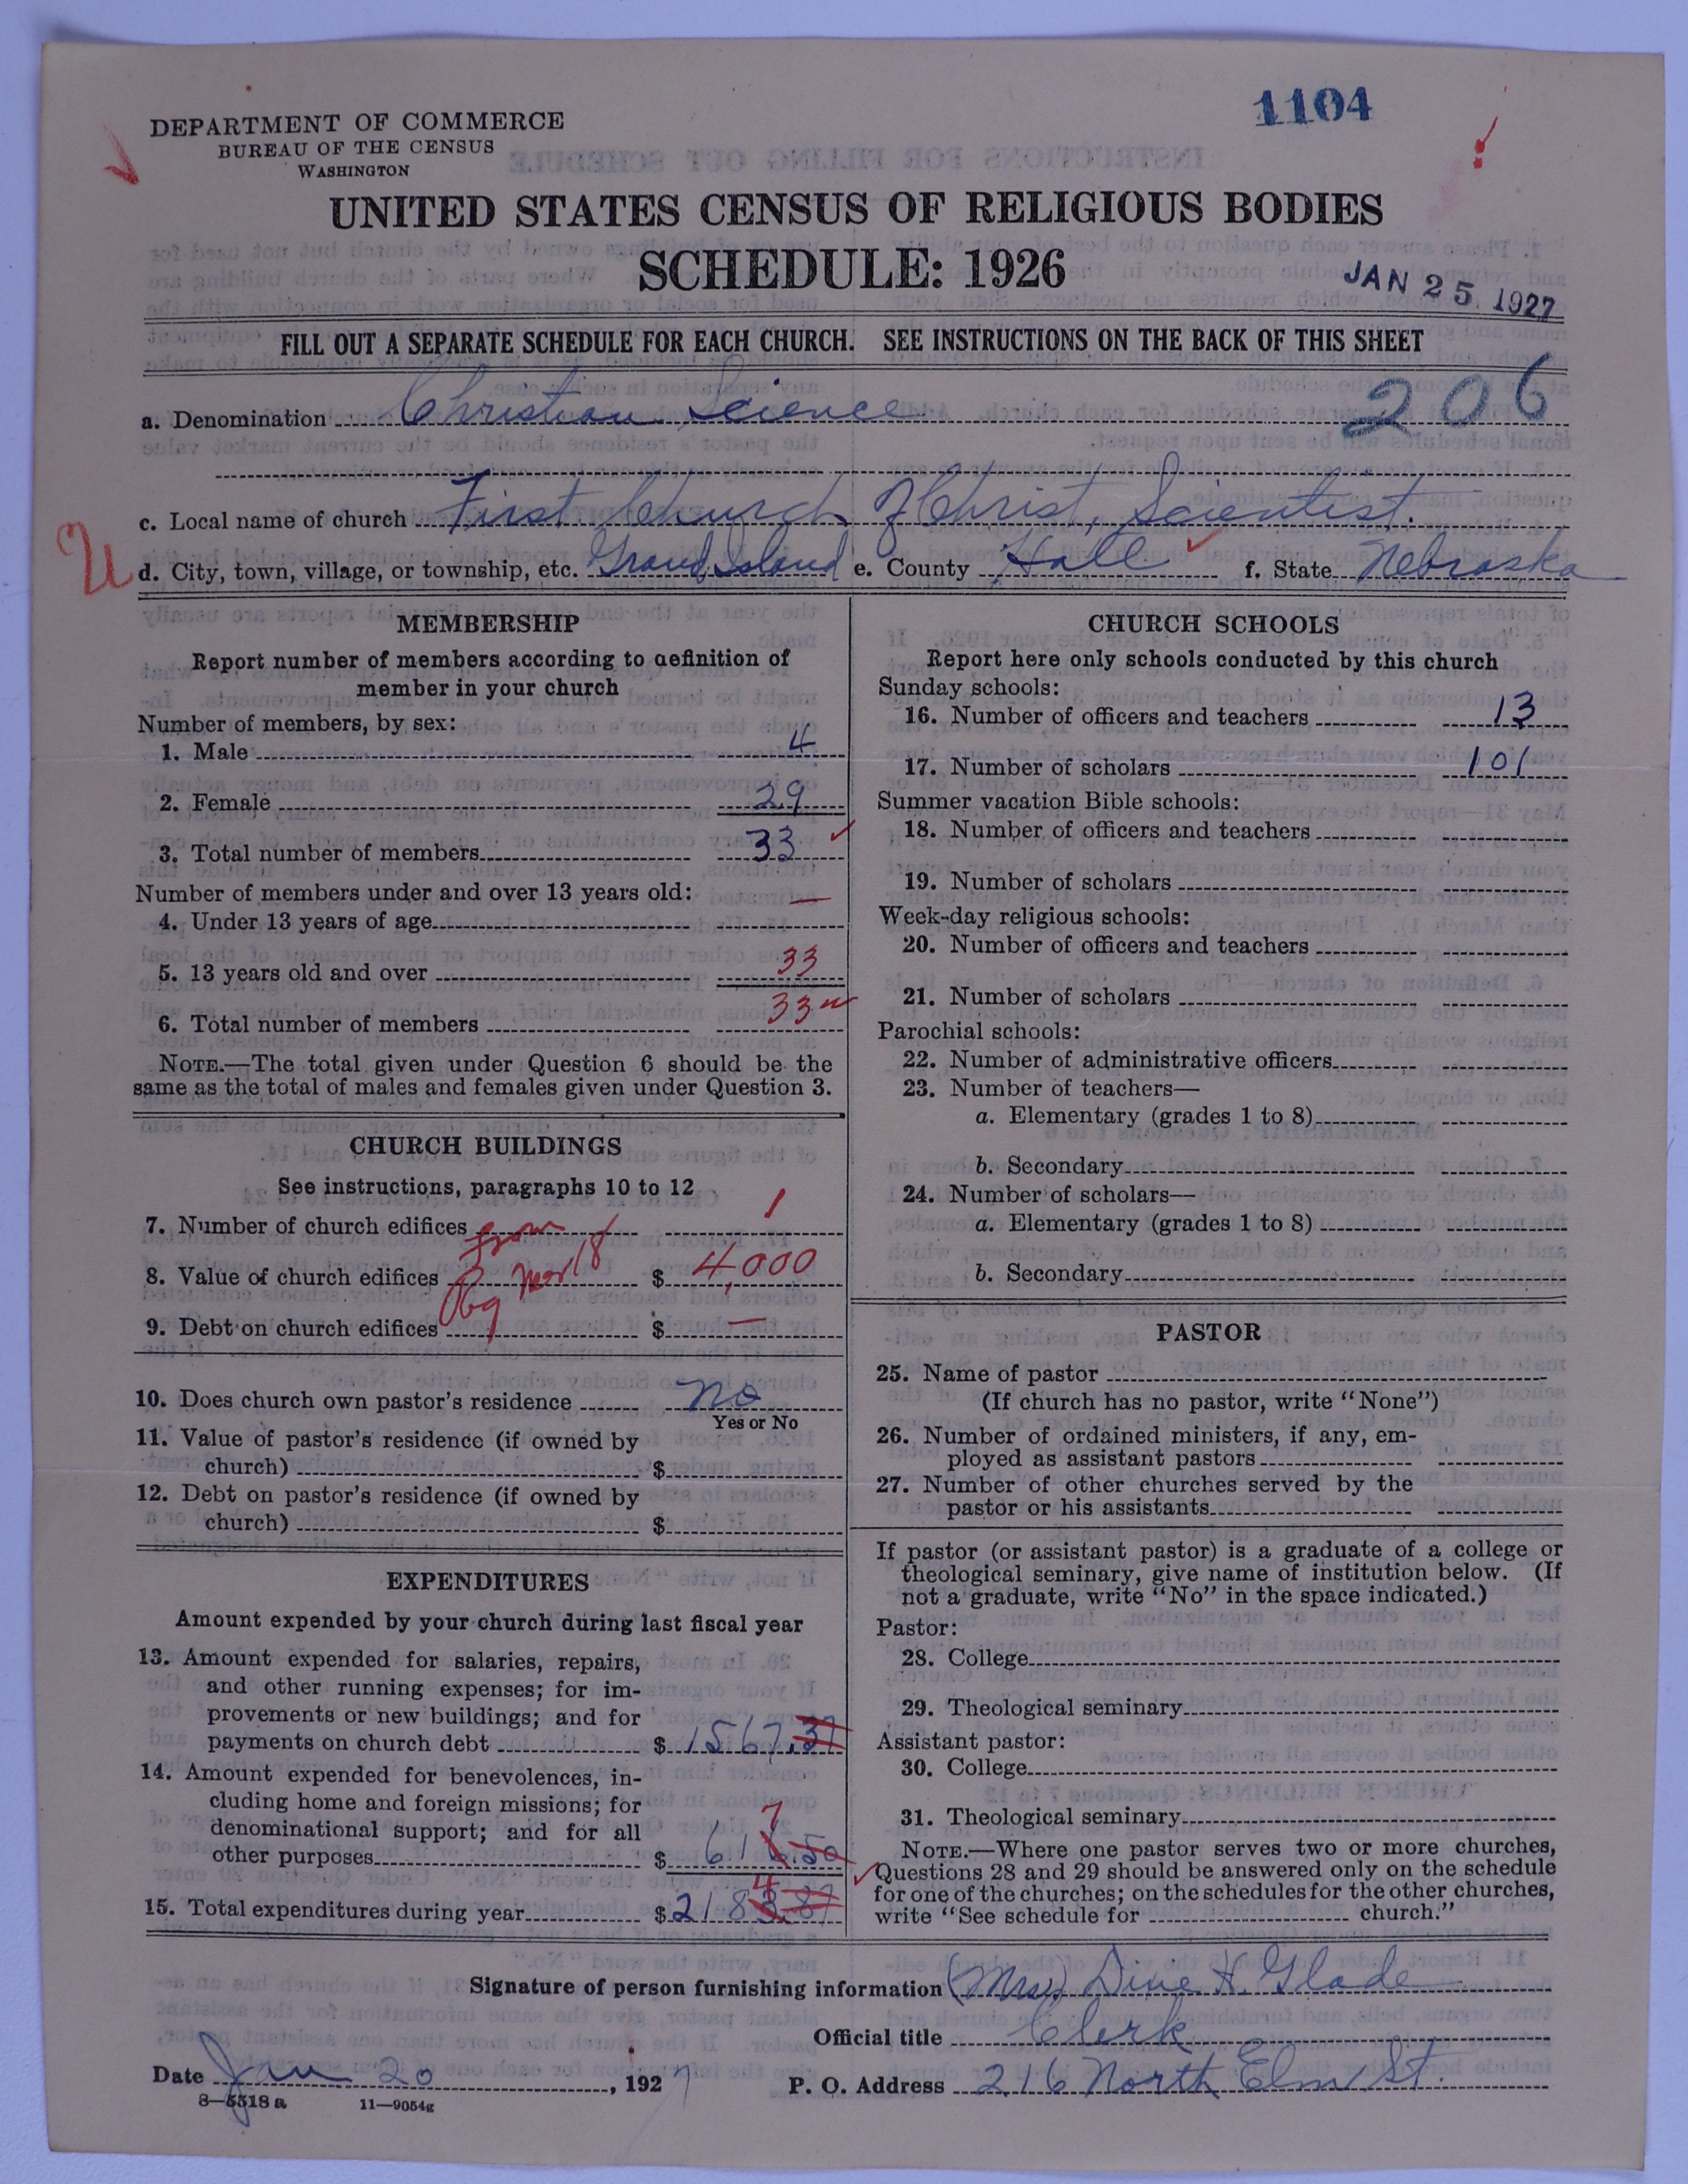 1104
DEPARTMENT OF COMMERCE
BUREAU OF THE CENSUS
WASHINGTON
UNITED STATES CENSUS OF RELIGIOUS BODIES
SCHEDULE: 1926
JAN 25 1927
FILL OUT A SEPARATE SCHEDULE FOR EACH CHURCH. SEE INSTRUCTIONS ON THE BACK OF THIS SHEET
a. Denomination Christian Science
206
c. Local name of church First Church of Christ, Scientist.
d. City, town, village, or township, etc. Grand Island e. County Hall f. State Nebraska
MEMBERSHIP
Report number of members according to definition of
member in your church
Number of members, by sex:
1. Male 4
2. Female 29
3. Total number of members 33
Number of members under and over 13 years old:
4. Under 13 years of age —
5. 13 years old and over 33
6. Total number of members 33
NOTE.—The total given under Question 6 should be the
same as the total of males and females given under Question 3.
CHURCH BUILDINGS
See instructions, paragraphs 10 to 12
7. Number of church edifices 1
8. Value of church edifices $ 4,000
9. Debt on church edifices $ —
10. Does church own pastor's residence No
Yes or No
11. Value of pastor's residence (if owned by
church) $
12. Debt on pastor's residence (if owned by
church) $
EXPENDITURES
Amount expended by your church during last fiscal year
13. Amount expended for salaries, repairs,
and other running expenses; for im-
provements or new buildings; and for
payments on church debt $ 1567.37
14. Amount expended for benevolences, in-
cluding home and foreign missions; for
denominational support; and for all
7
other purposes $ 616.50
4
15. Total expenditures during year $ 2183.87
CHURCH SCHOOLS
Report here only schools conducted by this church
Sunday schools:
16. Number of officers and teachers 13
17. Number of scholars 101
Summer vacation Bible schools:
18. Number of officers and teachers
19. Number of scholars
Week-day religious schools:
20. Number of officers and teachers
21. Number of scholars
Parochial schools:
22. Number of administrative officers
23. Number of teachers—
a. Elementary (grades 1 to 8)
b. Secondary
24. Number of scholars—
a. Elementary (grades 1 to 8)
b. Secondary
PASTOR
25. Name of pastor
(If church has no pastor, write "None")
26. Number of ordained ministers, if any, em-
ployed as assistant pastors
27. Number of other churches served by the
pastor or his assistants
If pastor (or assistant pastor) is a graduate of a college or
theological seminary, give name of institution below. (If
not a graduate, write "No" in the space indicated.)
Pastor:
28. College
29. Theological seminary
Assistant pastor:
30. College
31. Theological seminary
NOTE.—Where one pastor serves two or more churches,
Questions 28 and 29 should be answered only on the schedule
for one of the churches; on the schedules for the other churches,
write "See schedule for church."
Signature of person furnishing information (Mrs) H. Glade
Official title Clerk
Date Jan 20, 1927 P. O. Address 216 North Elm St.
8—5518 a 11—9054g